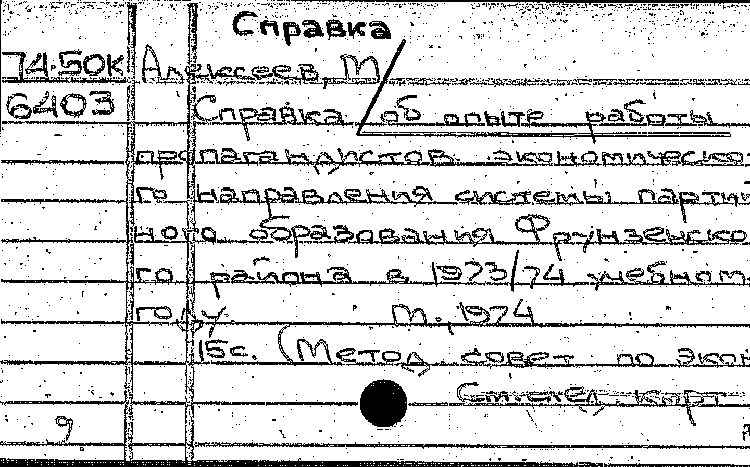 Справка
74.50К Алексеев, М
6403 Справка об опыте работы
пропагандистов экономическо-
го направления системы партий
ного образования Фрунзенско
го района в 1973/74 учебном
году. М., 1974
15с. (Метод. совет по экон
См.след. карт
9